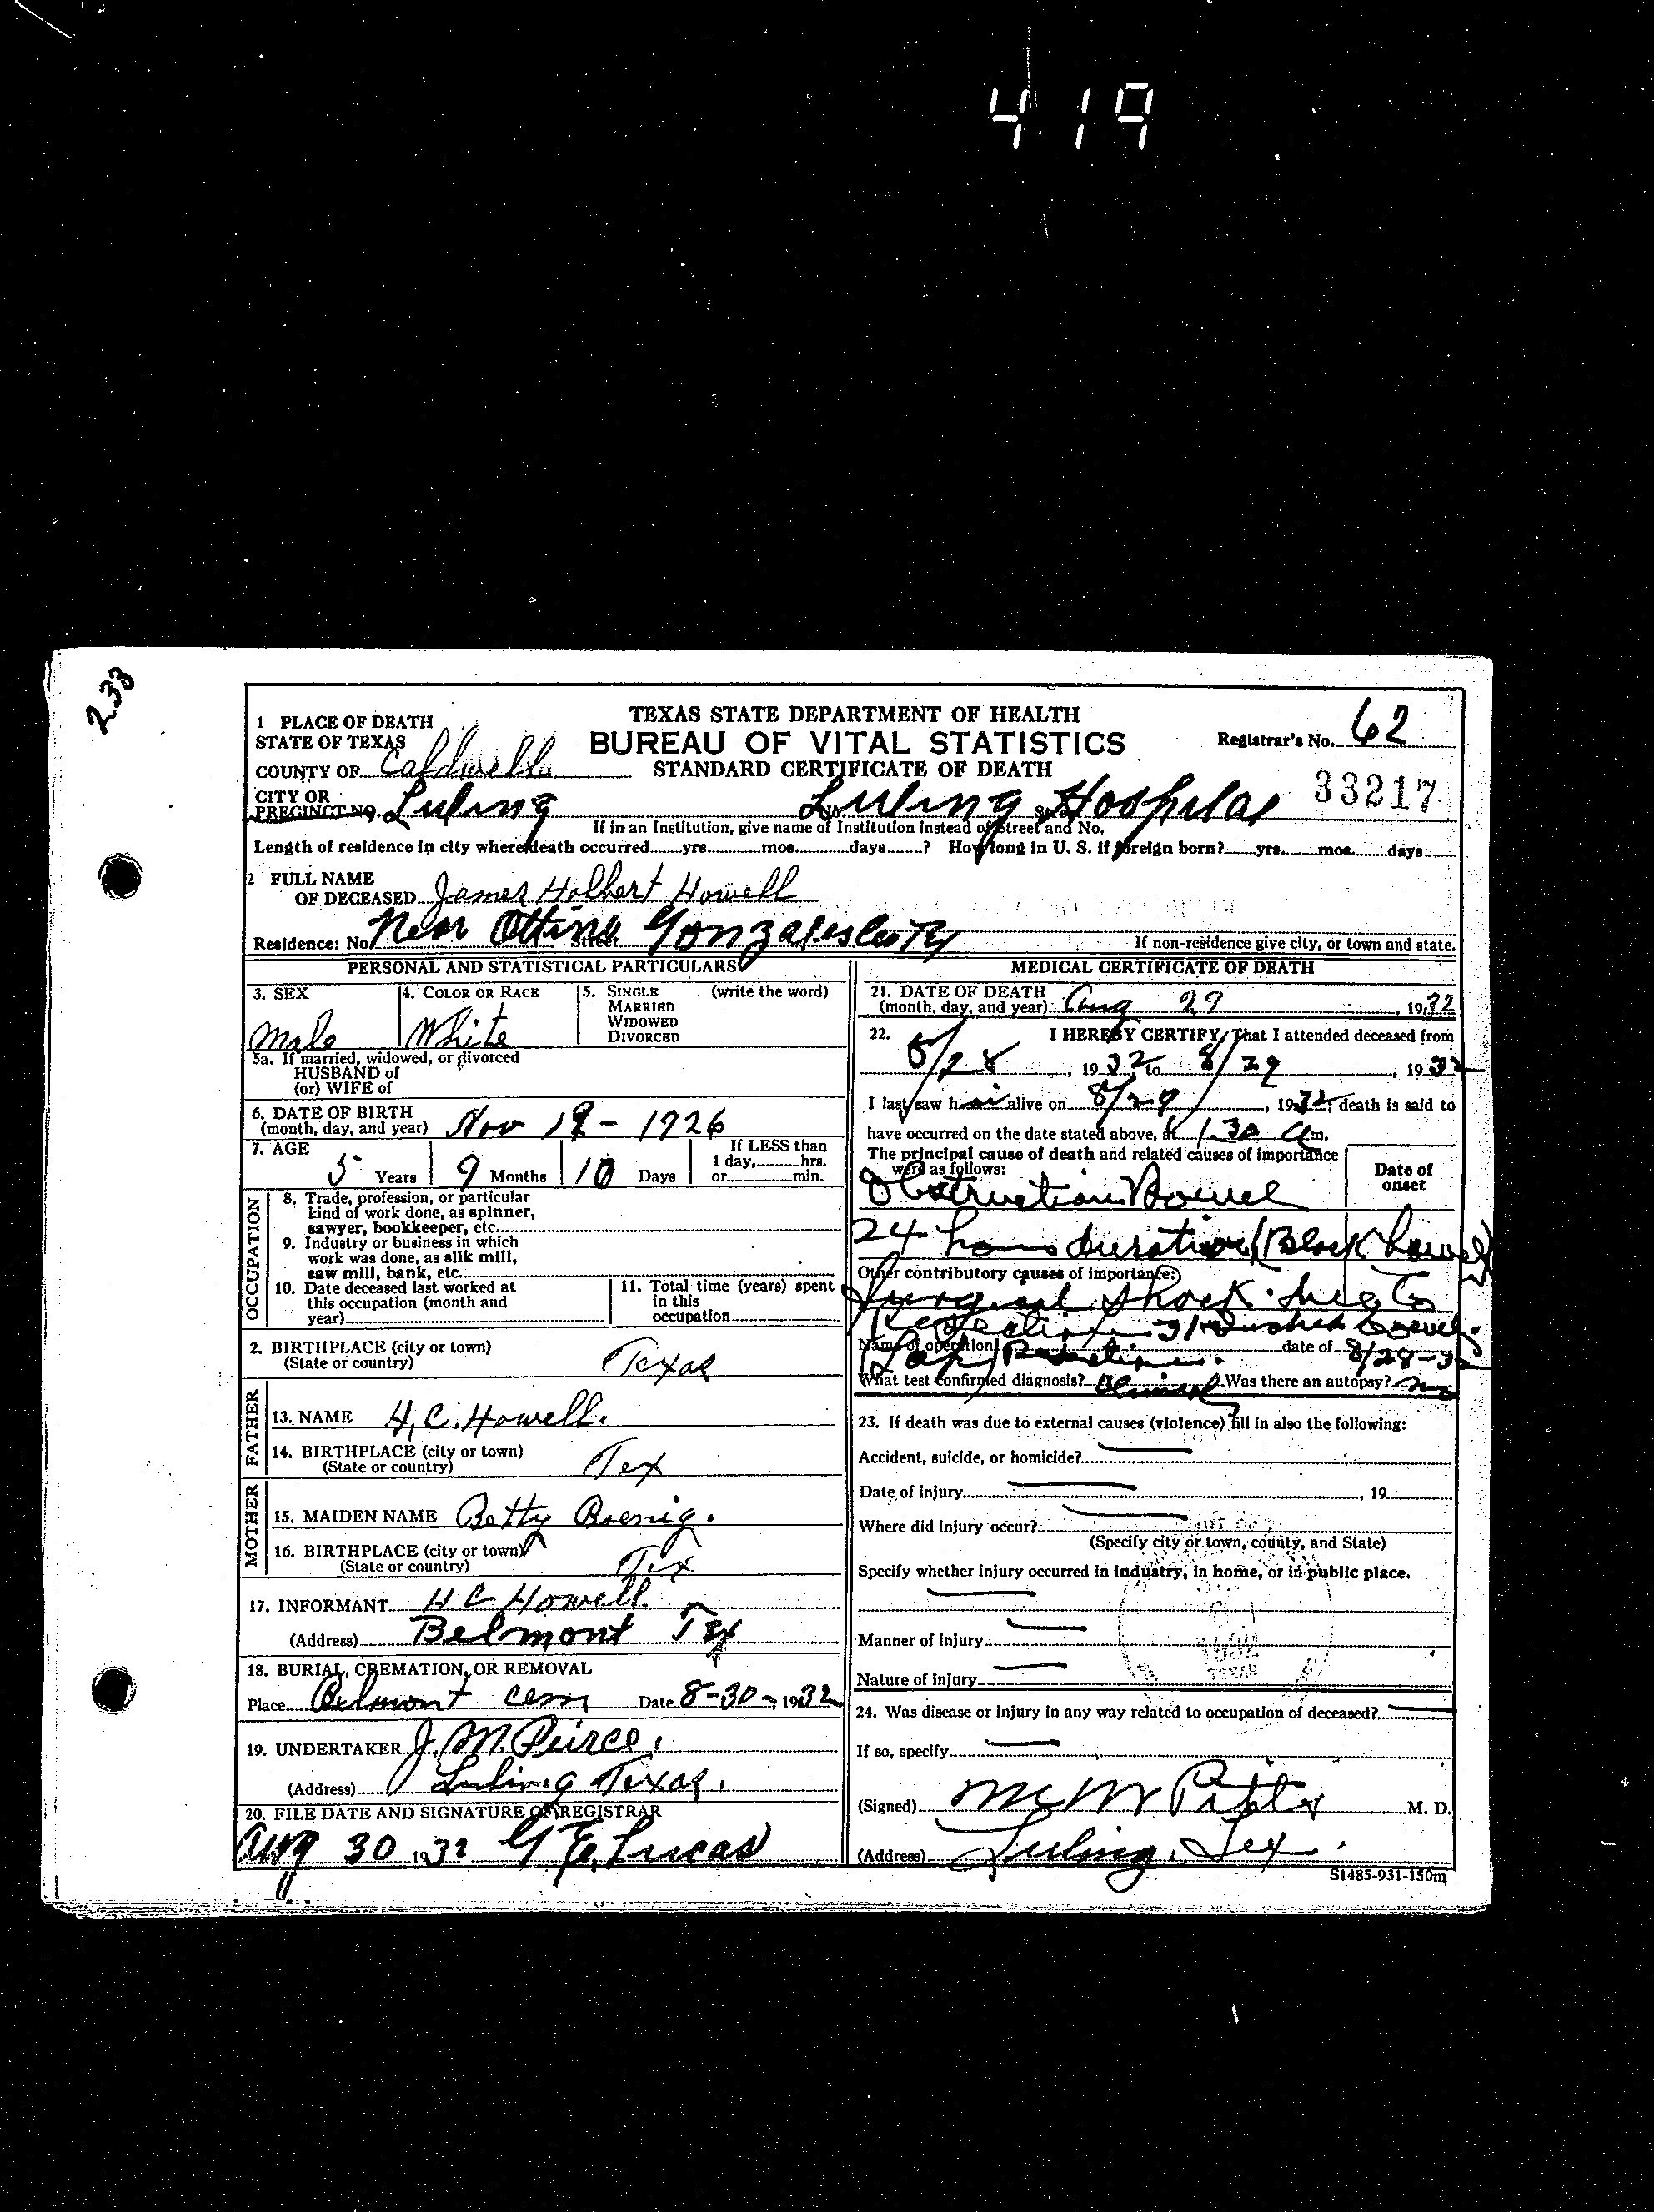 419
233
1 PLACE OF DEATH
STATE OF TEXAS
COUNTY OF Caldwell
CITY OR
PRECINCT NO. Luling
TEXAS STATE DEPARTMENT OF HEALTH
BUREAU OF VITAL STATISTICS
STANDARD CERTIFICATE OF DEATH
Registrar's No. 62
33217
No. Luling Hospital
If in an Institution, give name of Institution instead of Street and No.
Length of residence in city where death occurred yrs. mos. days ? How long in U. S. if foreign born? yrs. mos. days
2 FULL NAME
OF DECEASED James Holbert Howell
Residence: No. Near Ottine Street Gonzales Co Tx
If non-residence give city, or town and state.
PERSONAL AND STATISTICAL PARTICULARS
3. SEX 4. COLOR OR RACE 5. SINGLE (write the word)
MARRIED
WIDOWED
DIVORCED
Male White
5a. If married, widowed, or divorced
HUSBAND of
(or) WIFE of
6. DATE OF BIRTH
(month, day, and year) Nov 19 - 1926
7. AGE
5 Years 9 Months 10 Days
If LESS than
1 day, hrs.
or min.
OCCUPATION
8. Trade, profession, or particular
kind of work done, as spinner,
sawyer, bookkeeper, etc.
9. Industry or business in which
work was done, as silk mill,
saw mill, bank, etc.
10. Date deceased last worked at
this occupation (month and
year)
11. Total time (years) spent
in this
occupation
2. BIRTHPLACE (city or town)
(State or country) Texas
FATHER
13. NAME H. C. Howell.
14. BIRTHPLACE (city or town)
(State or country) Tex
MOTHER
15. MAIDEN NAME Betty Boenig.
16. BIRTHPLACE (city or town)
(State or country) Tex
17. INFORMANT H C Howell
(Address) Belmont Tex
18. BURIAL, CREMATION, OR REMOVAL
Place Belmont cem Date 8-30-, 1932
19. UNDERTAKER J. M. Peirce.
(Address) Luling Texas.
20. FILE DATE AND SIGNATURE OF REGISTRAR
Aug 30 1932 G E Lucas
MEDICAL CERTIFICATE OF DEATH
21. DATE OF DEATH
(month, day, and year) Aug 29, 1932
22. I HEREBY CERTIFY, That I attended deceased from
8/28, 1932 to 8/29, 1932
I last saw him alive on 8/29, 1932, death is said to
have occurred on the date stated above, at 1:30 am.
The principal cause of death and related causes of importance
were as follows:
Date of
onset
Obstruction Bowel
24 hours duration (Black bowel)
Other contributory causes of importance:
Surgical Shock due to
Resection bowel.
Name of operation Resection. date of 8/28-32
What test confirmed diagnosis? Clinical Was there an autopsy? no
23. If death was due to external causes (violence) fill in also the following:
Accident, suicide, or homicide?
Date of injury , 19
Where did injury occur?
(Specify city or town, county, and State)
Specify whether injury occurred in industry, in home, or in public place.
Manner of injury
Nature of injury
24. Was disease or injury in any way related to occupation of deceased?
If so, specify
(Signed) M. D.
(Address) Luling, Tex.
S1485-931-150m